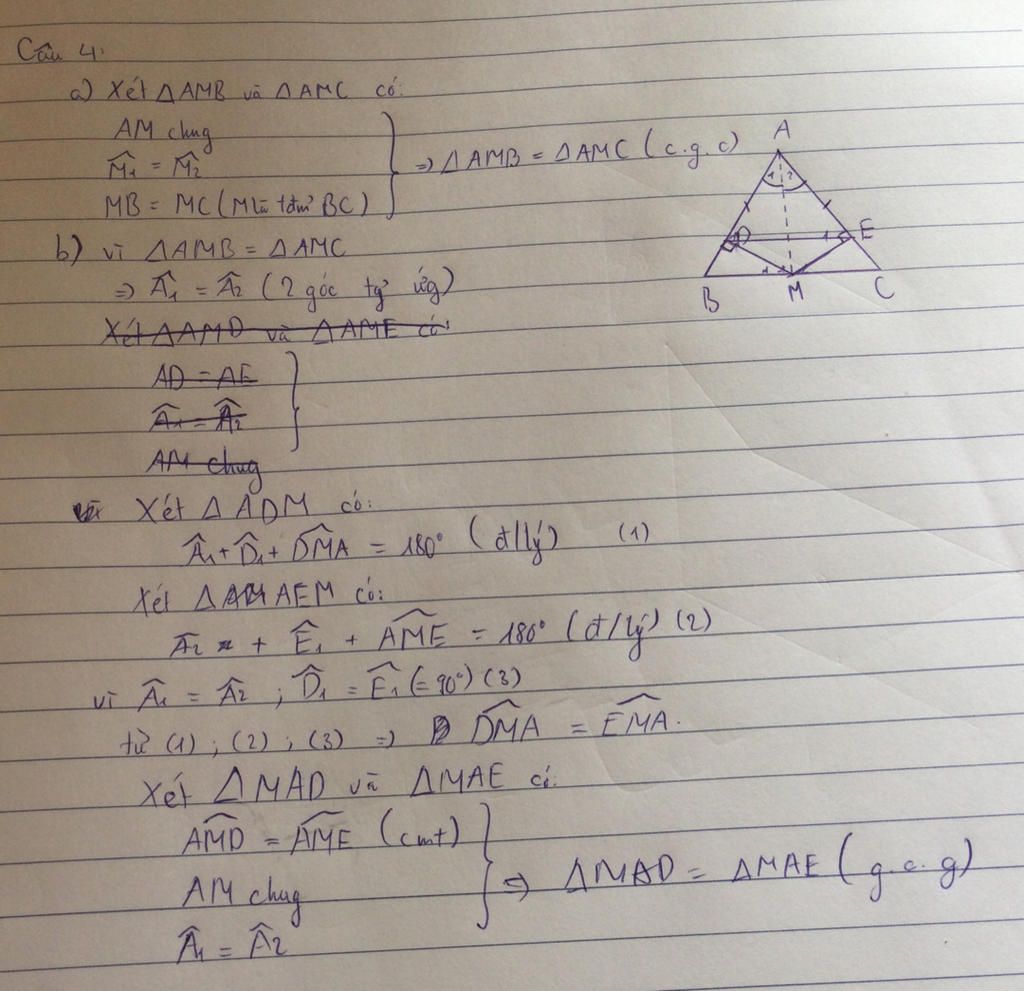 Câu 4:
a) Xét ΔAMB và ΔAMC có:
AM chug
M̂1 = M̂2
MB = MC (M là tđm² BC)
⇒ ΔAMB = ΔAMC (c.g.c)
A
1 2
D
1 E
B
1 2
M
C
b) vì ΔAMB = ΔAMC
⇒ Â1 = Â2 (2 góc tg² ứg)
Xét ΔAMD và ΔAME có:
AD = AE
Â1 = Â2
AM chug
Xét ΔADM có:
Â1 + D̂1 + DMA = 180° (đ/lý) (1)
Xét ΔAEM có:
A2 + Ê1 + AME = 180° (đ/lý) (2)
vì Â1 = Â2 ; D̂1 = Ê1 (= 90°) (3)
từ (1) ; (2) ; (3) ⇒ DMA = EMA.
Xét ΔMAD và ΔMAE có:
AMD = AME (cmt)
AM chug
Â1 = Â2
⇒ ΔMAD = ΔMAE (g.c.g)